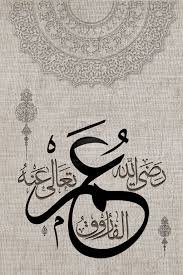 عُمَر
الفَارُوق
رَضِيَ اللّٰه
تَعَالٰى عَنْهُ